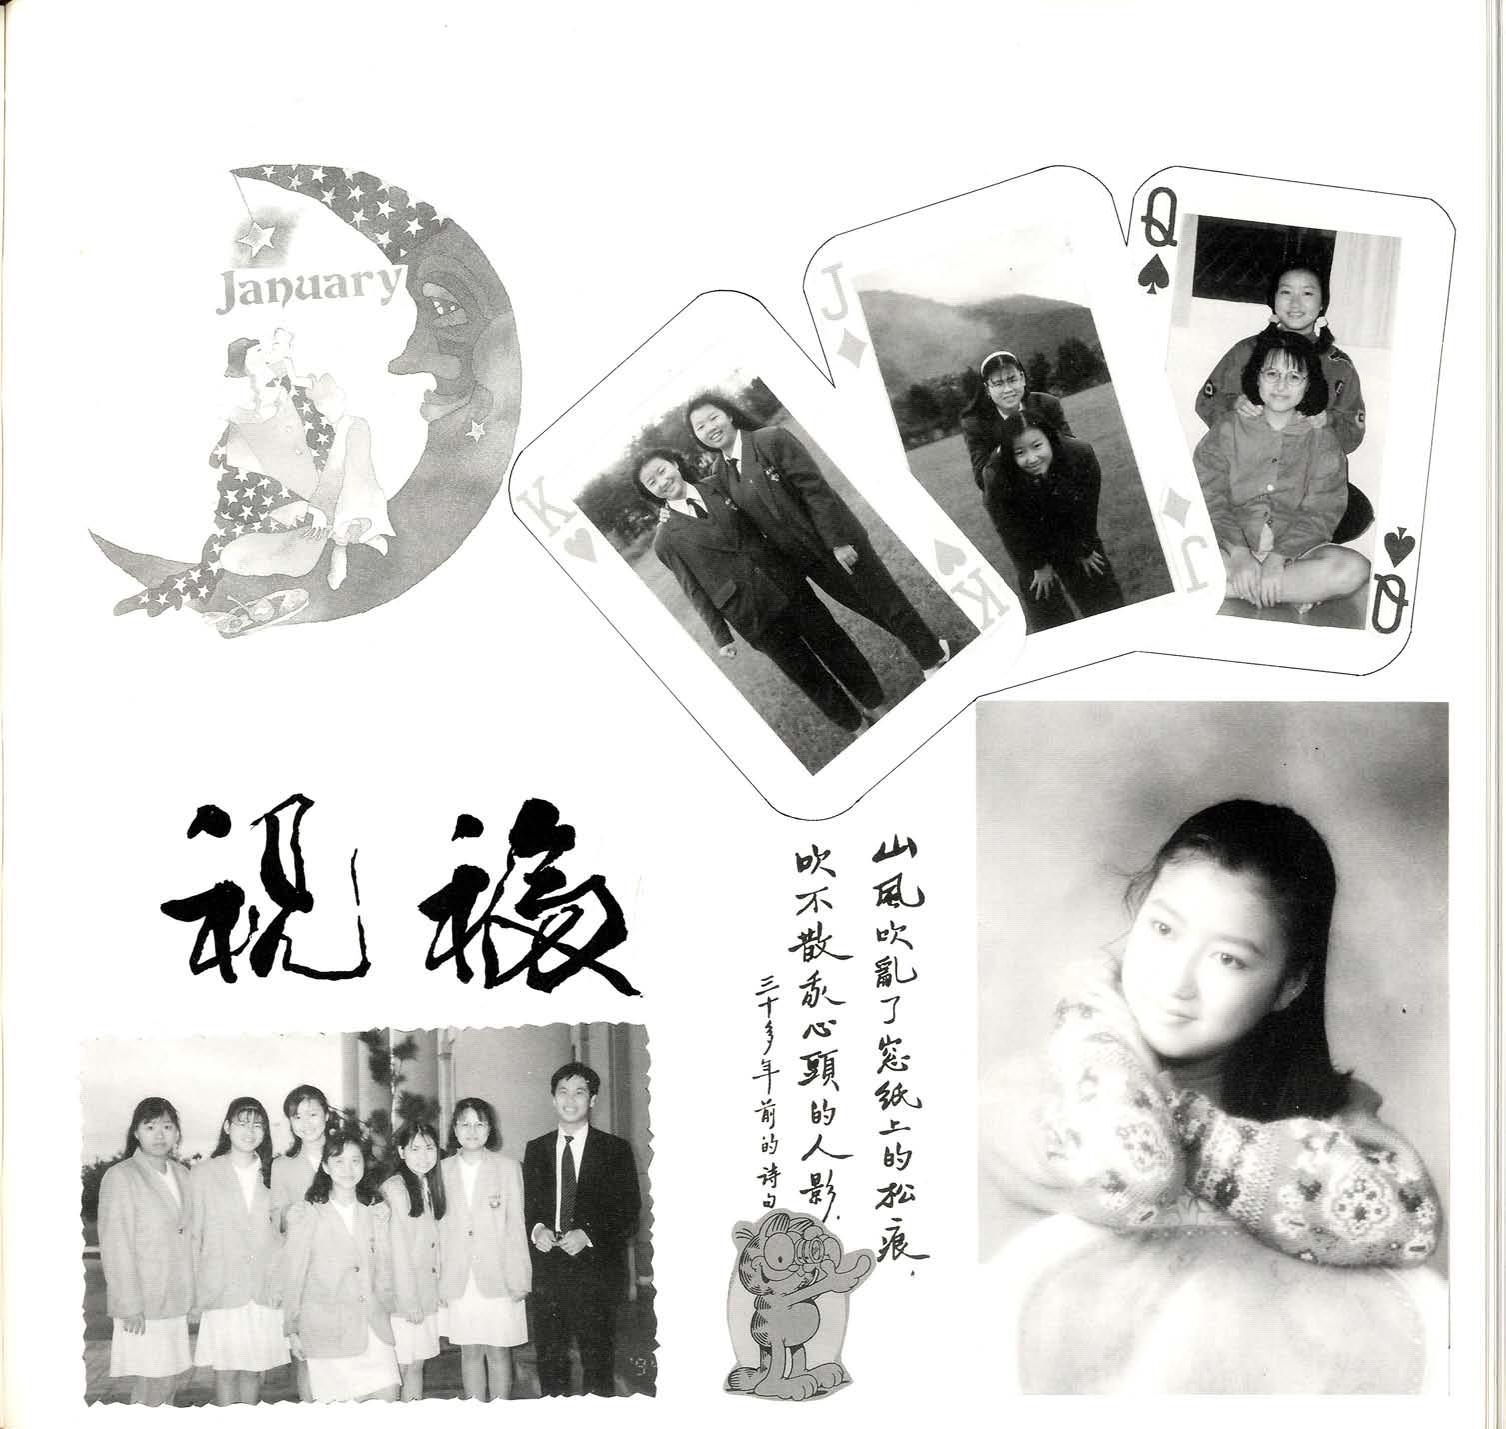 January
K
K
J
J
Q
Q
祝福
山風吹亂了窓紙上的松痕.
吹不散我心頭的人影.
三十多年前的诗句